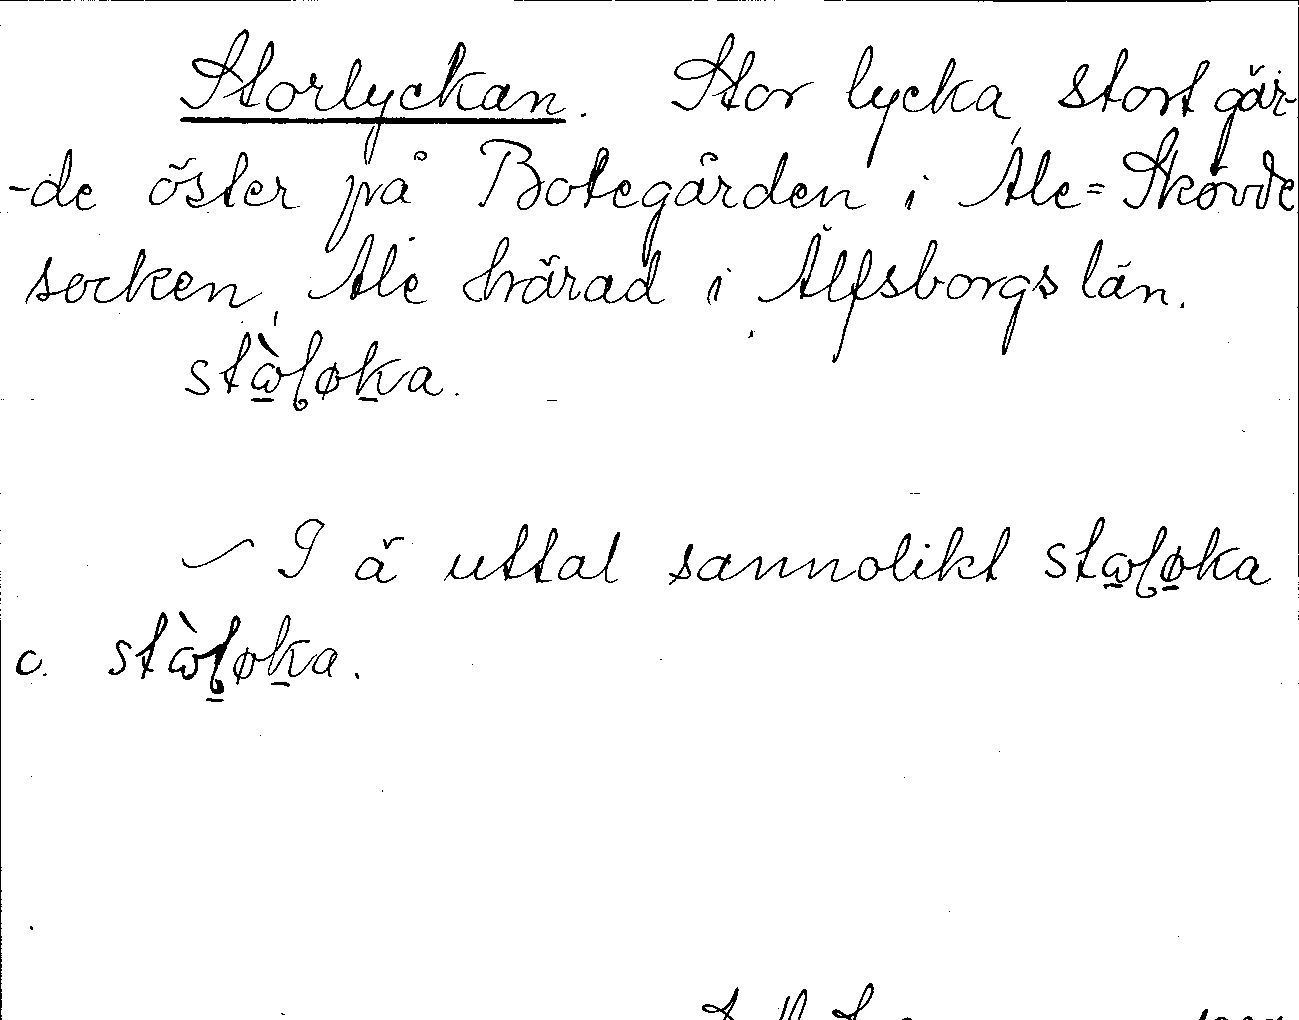 Storlyckan. Stor lycka, stort gär-
-de öster på Botegården i Ale=Skövde
socken, Ale härad i Älfsborgs län.
stɷ̀ɽøka.
I ä uttal sannolikt stɷɽøka
c. stɷ̀ɽøka.